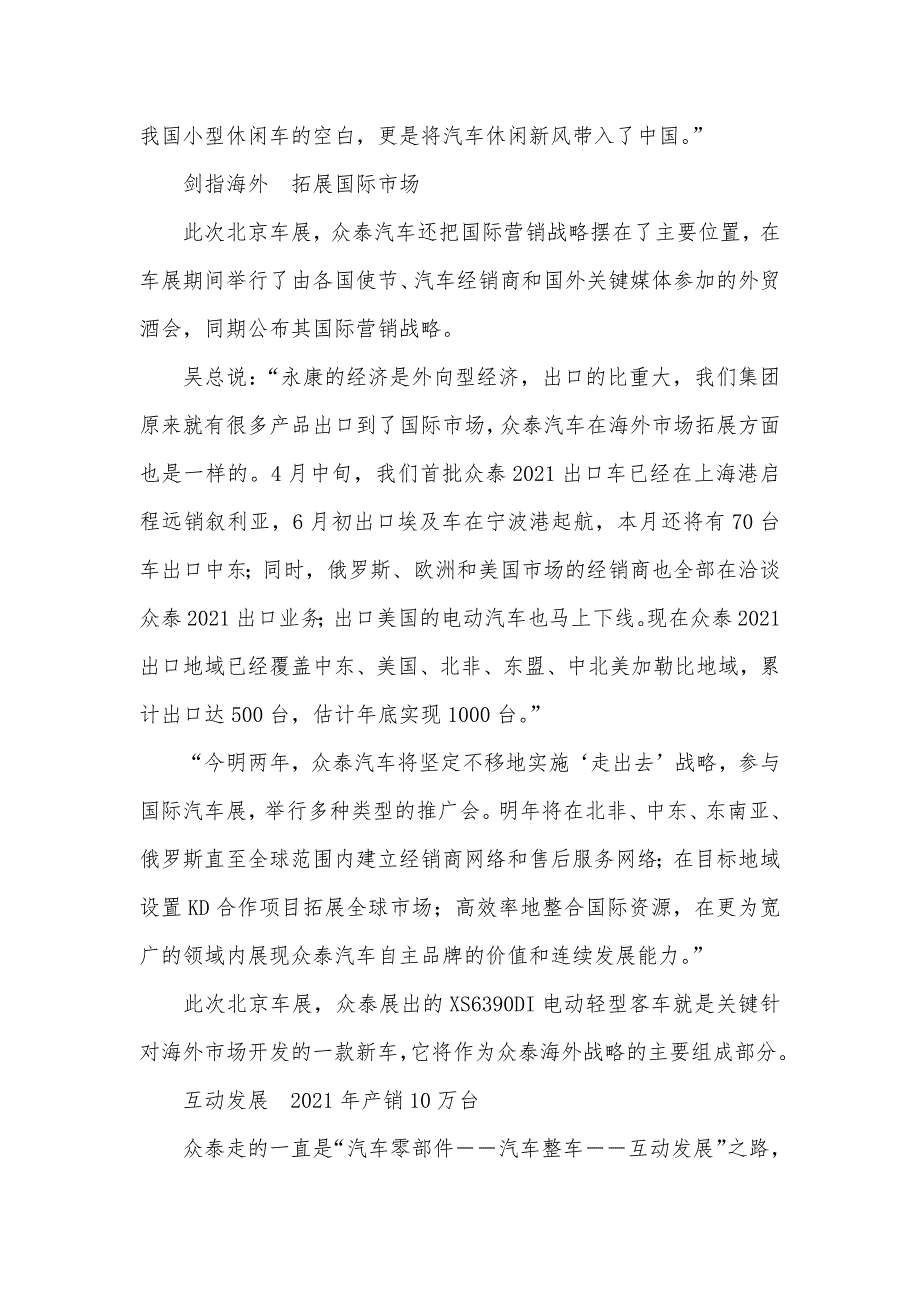 我国小型休闲车的空白，更是将汽车休闲新风带入了中国。”
剑指海外　拓展国际市场
此次北京车展，众泰汽车还把国际营销战略摆在了主要位置，在
车展期间举行了由各国使节、汽车经销商和国外关键媒体参加的外贸
酒会，同期公布其国际营销战略。
吴总说：“永康的经济是外向型经济，出口的比重大，我们集团
原来就有很多产品出口到了国际市场，众泰汽车在海外市场拓展方面
也是一样的。4 月中旬，我们首批众泰 2021 出口车已经在上海港启
程远销叙利亚，6 月初出口埃及车在宁波港起航，本月还将有 70 台
车出口中东；同时，俄罗斯、欧洲和美国市场的经销商也全部在洽谈
众泰 2021 出口业务；出口美国的电动汽车也马上下线。现在众泰 2021
出口地域已经覆盖中东、美国、北非、东盟、中北美加勒比地域，累
计出口达 500 台，估计年底实现 1000 台。”
“今明两年，众泰汽车将坚定不移地实施‘走出去’战略，参与
国际汽车展，举行多种类型的推广会。明年将在北非、中东、东南亚、
俄罗斯直至全球范围内建立经销商网络和售后服务网络；在目标地域
设置 KD 合作项目拓展全球市场；高效率地整合国际资源，在更为宽
广的领域内展现众泰汽车自主品牌的价值和连续发展能力。”
此次北京车展，众泰展出的 XS6390DI 电动轻型客车就是关键针
对海外市场开发的一款新车，它将作为众泰海外战略的主要组成部分。
互动发展　2021 年产销 10 万台
众泰走的一直是“汽车零部件－－汽车整车－－互动发展”之路，